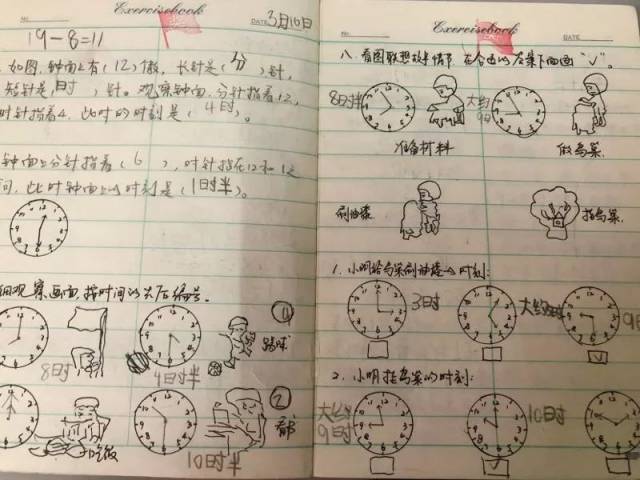 Exercisebook
DATE 3月10日
19-8=11
如图,钟面上有(12)个数,长针是(分)针,
短针是(时)针。观察钟面,分针指着12,
时针指着4,此时的时刻是(4时)。
钟面上分针指着(6),时针指在12和1之
间,此时钟面上的时刻是(1时半)。
观察画面,按时间的先后编号。
8时
4时半
④
踢球
吃饭
10时半
②
Exercisebook
NO.
DATE
八、看图联想故事情节,在合适的答案下面画"√"。
8时半
大约
9时
准备材料
做鸟巢
刷油漆
挂鸟巢
1.小明给鸟巢刷油漆的时刻:
3时
大约
9
√
2.小明挂鸟巢的时刻:
大约
9时
10时
√